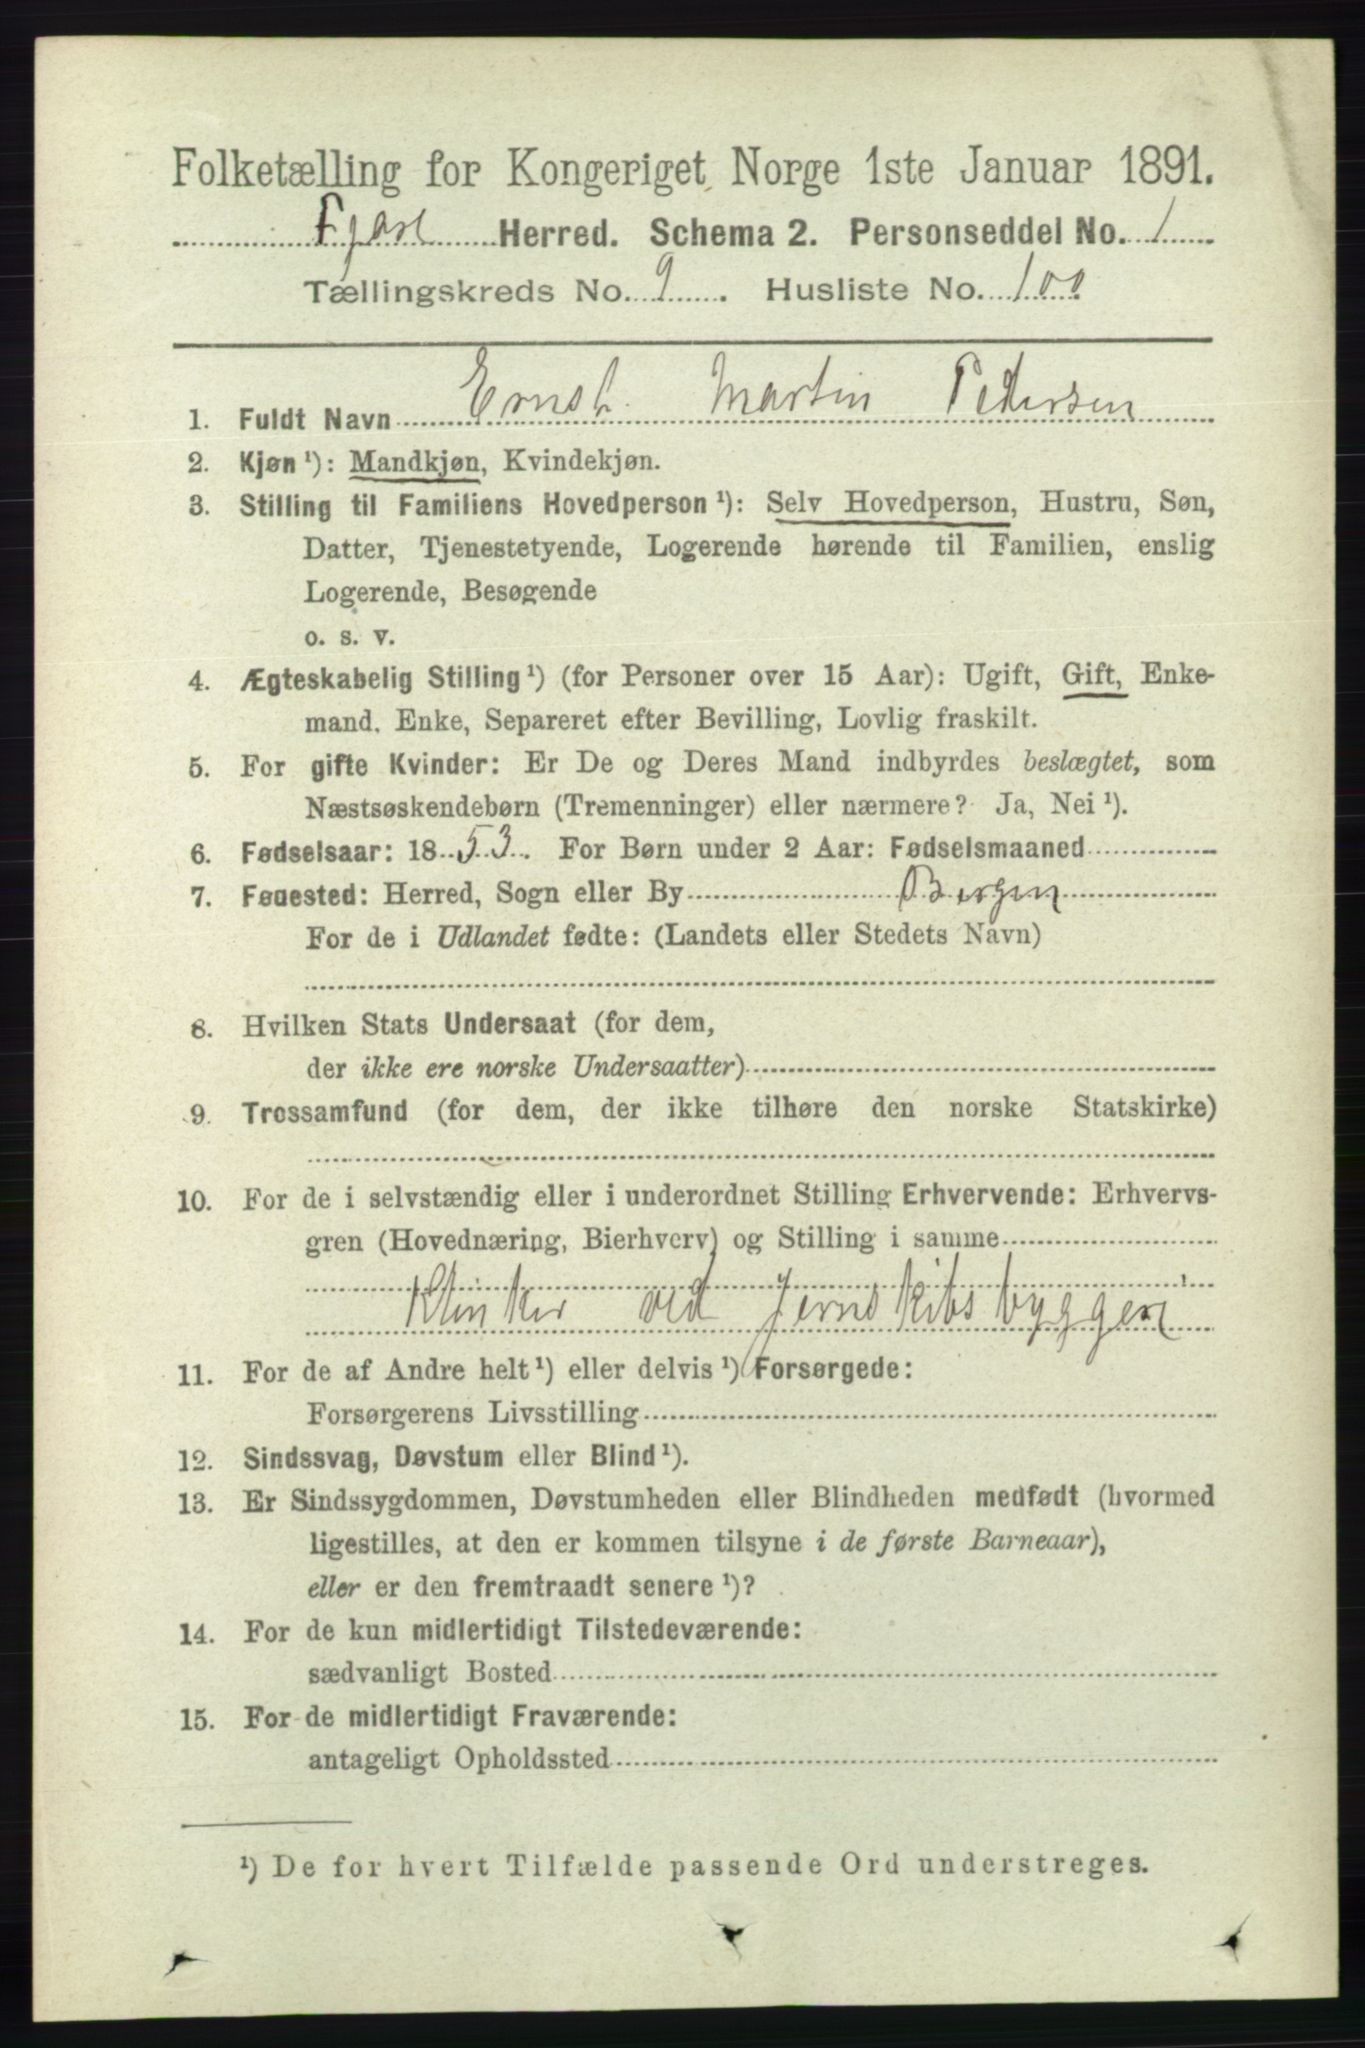 Folketælling for Kongeriget Norge 1ste Januar 1891.
Fjære Herred. Schema 2. Personseddel No. 1
Tællingskreds No. 9. Husliste No. 100
1. Fuldt Navn Ernst Martin Pedersen
2. Kjøn ¹): Mandkjøn, Kvindekjøn.
3. Stilling til Familiens Hovedperson ¹): Selv Hovedperson, Hustru, Søn,
Datter, Tjenestetyende, Logerende hørende til Familien, enslig
Logerende, Besøgende
o. s. v.
4. Ægteskabelig Stilling ¹) (for Personer over 15 Aar): Ugift, Gift, Enke-
mand, Enke, Separeret efter Bevilling, Lovlig fraskilt.
5. For gifte Kvinder: Er De og Deres Mand indbyrdes beslægtet, som
Næstsøskendebørn (Tremenninger) eller nærmere? Ja, Nei ¹).
6. Fødselsaar: 1853. For Børn under 2 Aar: Fødselsmaaned
7. Føuested: Herred, Sogn eller By Bergen
For de i Udlandet fødte: (Landets eller Stedets Navn)
8. Hvilken Stats Undersaat (for dem,
der ikke ere norske Undersaatter)
9. Trossamfund (for dem, der ikke tilhøre den norske Statskirke)
10. For de i selvstændig eller i underordnet Stilling Erhvervende: Erhvervs-
gren (Hovednæring, Bierhverv) og Stilling i samme
Klinker ved Jernskibsbyggeri
11. For de af Andre helt ¹) eller delvis ¹) Forsørgede:
Forsørgerens Livsstilling
12. Sindssvag, Døvstum eller Blind ¹).
13. Er Sindssygdommen, Døvstumheden eller Blindheden medfødt (hvormed
ligestilles, at den er kommen tilsyne i de første Barneaar),
eller er den fremtraadt senere ¹)?
14. For de kun midlertidigt Tilstedeværende:
sædvanligt Bosted
15. For de midlertidigt Fraværende:
antageligt Opholdssted
¹) De for hvert Tilfælde passende Ord understreges.